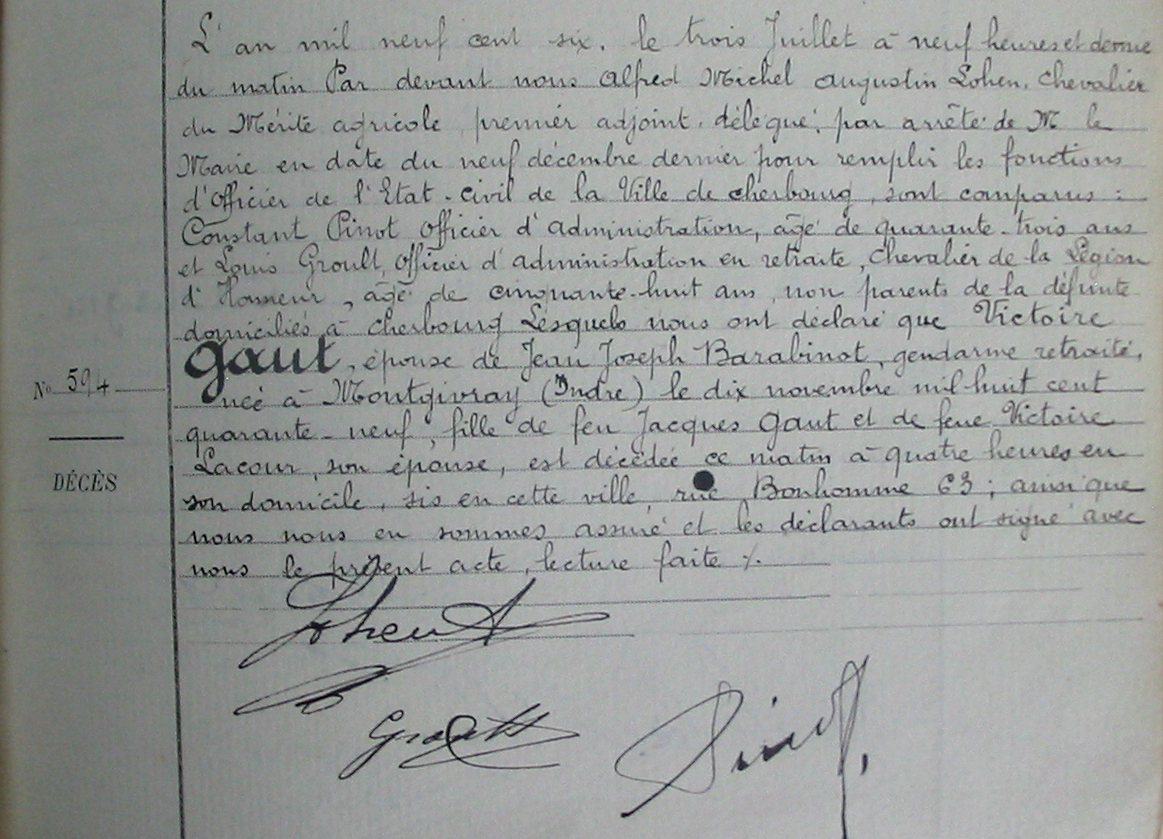 L'an mil neuf cent six, le trois Juillet à neuf heures et demie
du matin Par devant nous Alfred Michel Augustin Lohen, Chevalier
du Mérite agricole, premier adjoint, délégué, par arrêté de M le
Maire en date du neuf décembre dernier pour remplir les fonctions
d'Officier de l'Etat-civil de la Ville de Cherbourg, sont comparus :
Constant Pinot Officier d'administration, âgé de quarante-trois ans
et Louis Groult, Officier d'administration en retraite, Chevalier de la Légion
d'Honneur, âgé de cinquante-huit ans, non parents de la défunte
domiciliés à Cherbourg Lesquels nous ont déclaré que Victoire
Gaut, épouse de Jean Joseph Barabinot, gendarme retraité,
N° 594
née à Montgivray (Indre) le dix novembre mil huit cent
quarante-neuf, fille de feu Jacques Gaut et de feue Victoire
Lacour, son épouse, est décédée ce matin à quatre heures en
DÉCÈS
son domicile, sis en cette ville, rue Bonhomme 63 ; ainsi que
nous nous en sommes assuré et les déclarants ont signé avec
nous le présent acte, lecture faite ./.
Lohen A
Groult
Pinot